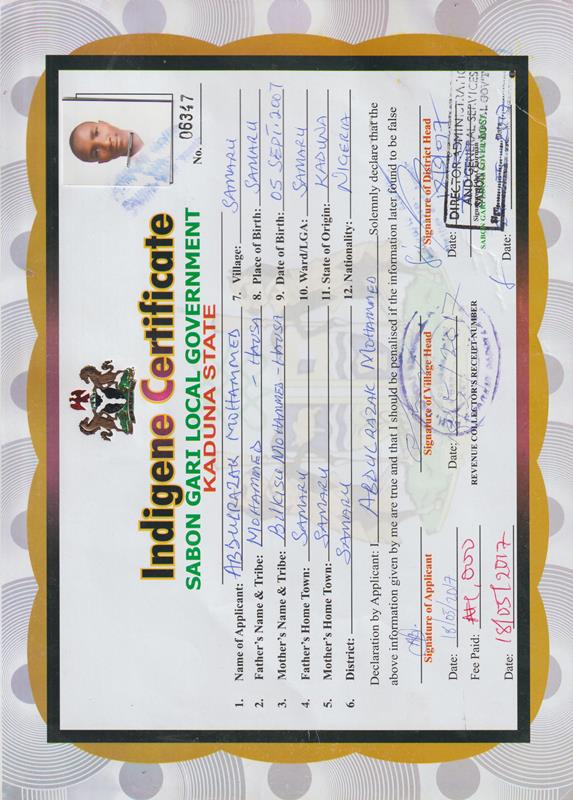 No. 06347
Indigene Certificate
SABON GARI LOCAL GOVERNMENT
KADUNA STATE
1. Name of Applicant: ABDULRAZAK MOHAMMED 7. Village: SAMARU
2. Father's Name & Tribe: MOHAMMED - HAUSA 8. Place of Birth: SAMARU
3. Mother's Name & Tribe: BILKISU MOHAMMED - HAUSA 9. Date of Birth: 05 SEPT. 2007
4. Father's Home Town: SAMARU 10. Ward/LGA: SAMARU
5. Mother's Home Town: SAMARU 11. State of Origin: KADUNA
6. District: SAMARU 12. Nationality: NIGERIA
Declaration by Applicant: I ABDULRAZAK MOHAMMED Solemnly declare that the
above information given by me are true and that I should be penalised if the information later found to be false
Signature of Applicant Signature of Village Head Signature of District Head
Date: 18/05/2017 Date: Date:
DIRECTOR ADMINISTRATION
AND GENERAL SERVICES
SABON GARI LOCAL GOV'T
Fee Paid: REVENUE COLLECTOR'S RECEIPT NUMBER
Date: 18/05/2017 Date: